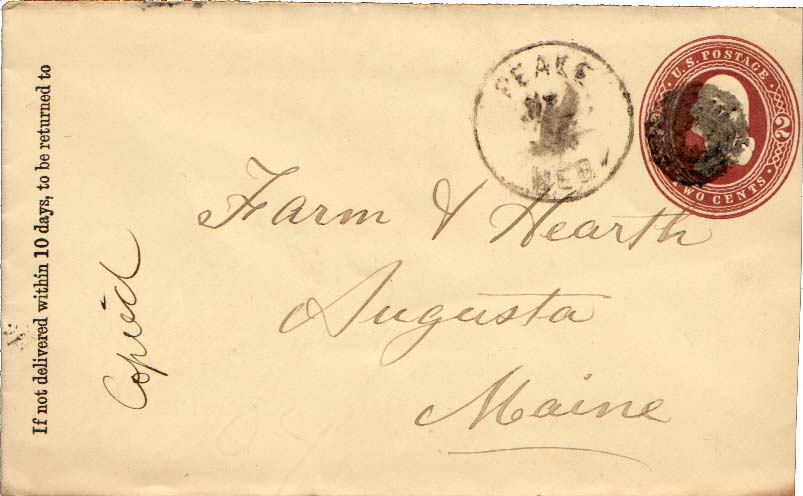 If not delivered within 10 days, to be returned to
Copied
PEAKE
NEB.
U.S. POSTAGE
2
TWO CENTS
Farm & Hearth
Augusta
Maine